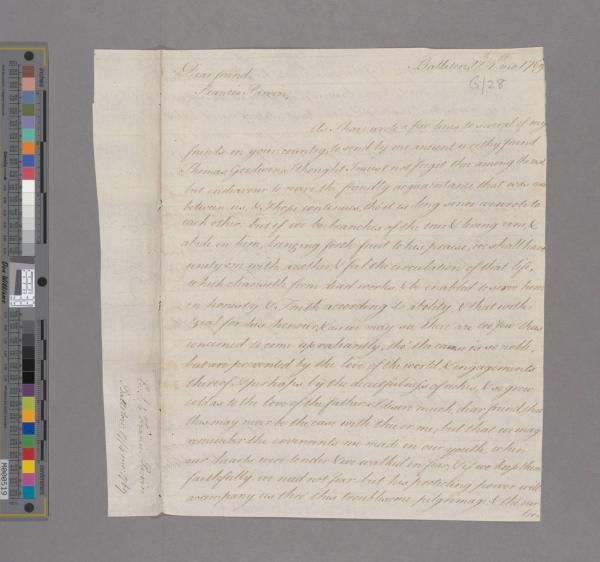 Ballitore 17/4th mo 1769
G/28
Dear friend
Francis Parvin,
As I have wrote a few lines to several of my
friends in your country, to send by our ancient worthy friend
Thomas Goodwin, I thought I must not forget thee among the rest
but endeavour to revive the friendly acquaintance that was
between us, & I hope continues, tho' it is long since we wrote to
each other: but if we be branches of the true & living vine, &
abide in him, bringing forth fruit to his praise, we shall have
unity one with another, & feel the circulation of that life,
which cleanseth from dead works, & be enabled to serve him
in honesty & Truth according to ability, & that with
zeal for his honour, & as we may see there are too few thus
concerned to come up valiantly, tho' the cause is so noble,
but are prevented by the love of the world & engagements
thereof, & perhaps by the deceitfulness of riches, & so grow
cold as to the love of the father. I desire much, dear friend, that
this may never be the case with thee or me, but that we may
remember the covenants we made in our youth, when
our hearts were tender & we walked in fear, & if we keep them
faithfully, we need not fear but his protecting power will
accompany us thro' this troublesome pilgrimage, & tho' our
Francis Parvin
Ballitore 17/4 mo 1769
M000519